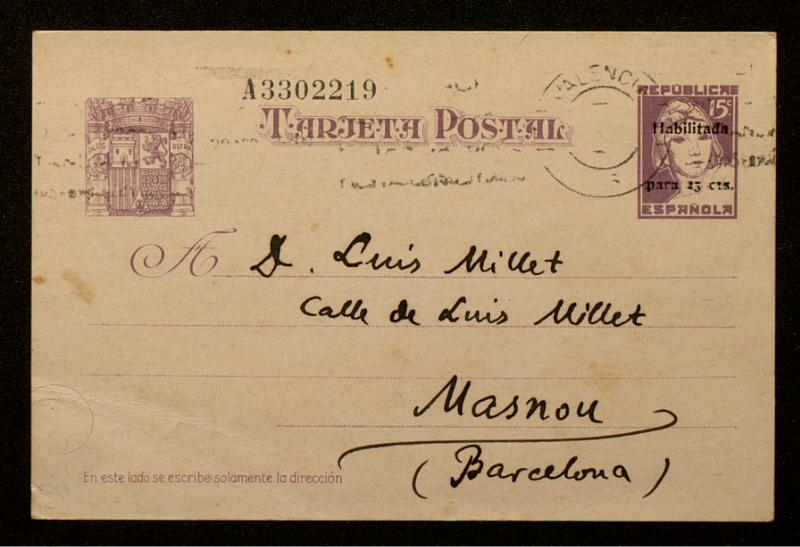 A3302219
VALENCI
TARJETA POSTAL
PLUS ULTRA
REPÚBLICA
15c
Habilitada
para 25 cts.
ESPAÑOLA
A D. Luis Millet
Calle de Luis Millet
Masnou
(Barcelona)
En este lado se escribe solamente la dirección